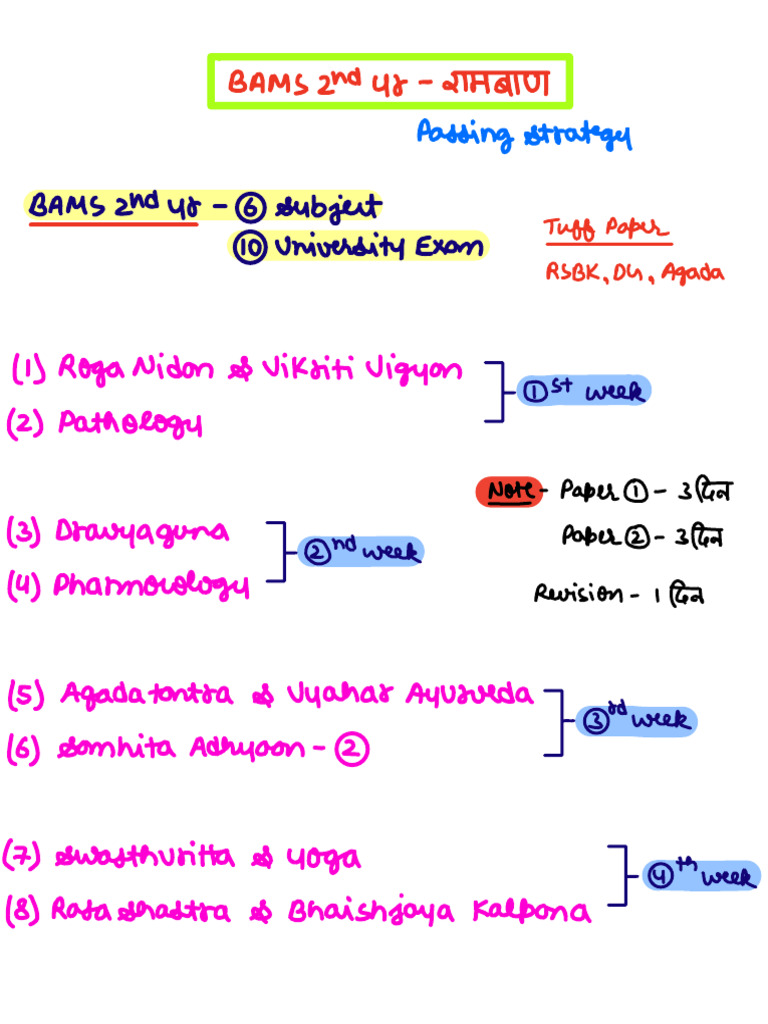 BAMS 2nd yr - रामबाण
Passing strategy
BAMS 2nd yr - 6 subject
10 University Exam
Tuff Paper
RSBK, DG, Agada
(1) Roga Nidan & Vikriti Vigyan
1st week
(2) Pathology
Note - Paper 1 - 3 दिन
(3) Dravyaguna
2nd week
Paper 2 - 3 दिन
(4) Pharmocology
Revision - 1 दिन
(5) Agadatantra & Vyahar Ayurveda
3rd week
(6) Samhita Adhyaan - 2
(7) Swasthvritta & Yoga
4th week
(8) Rasa Shastra & Bhaishjaya Kalpana